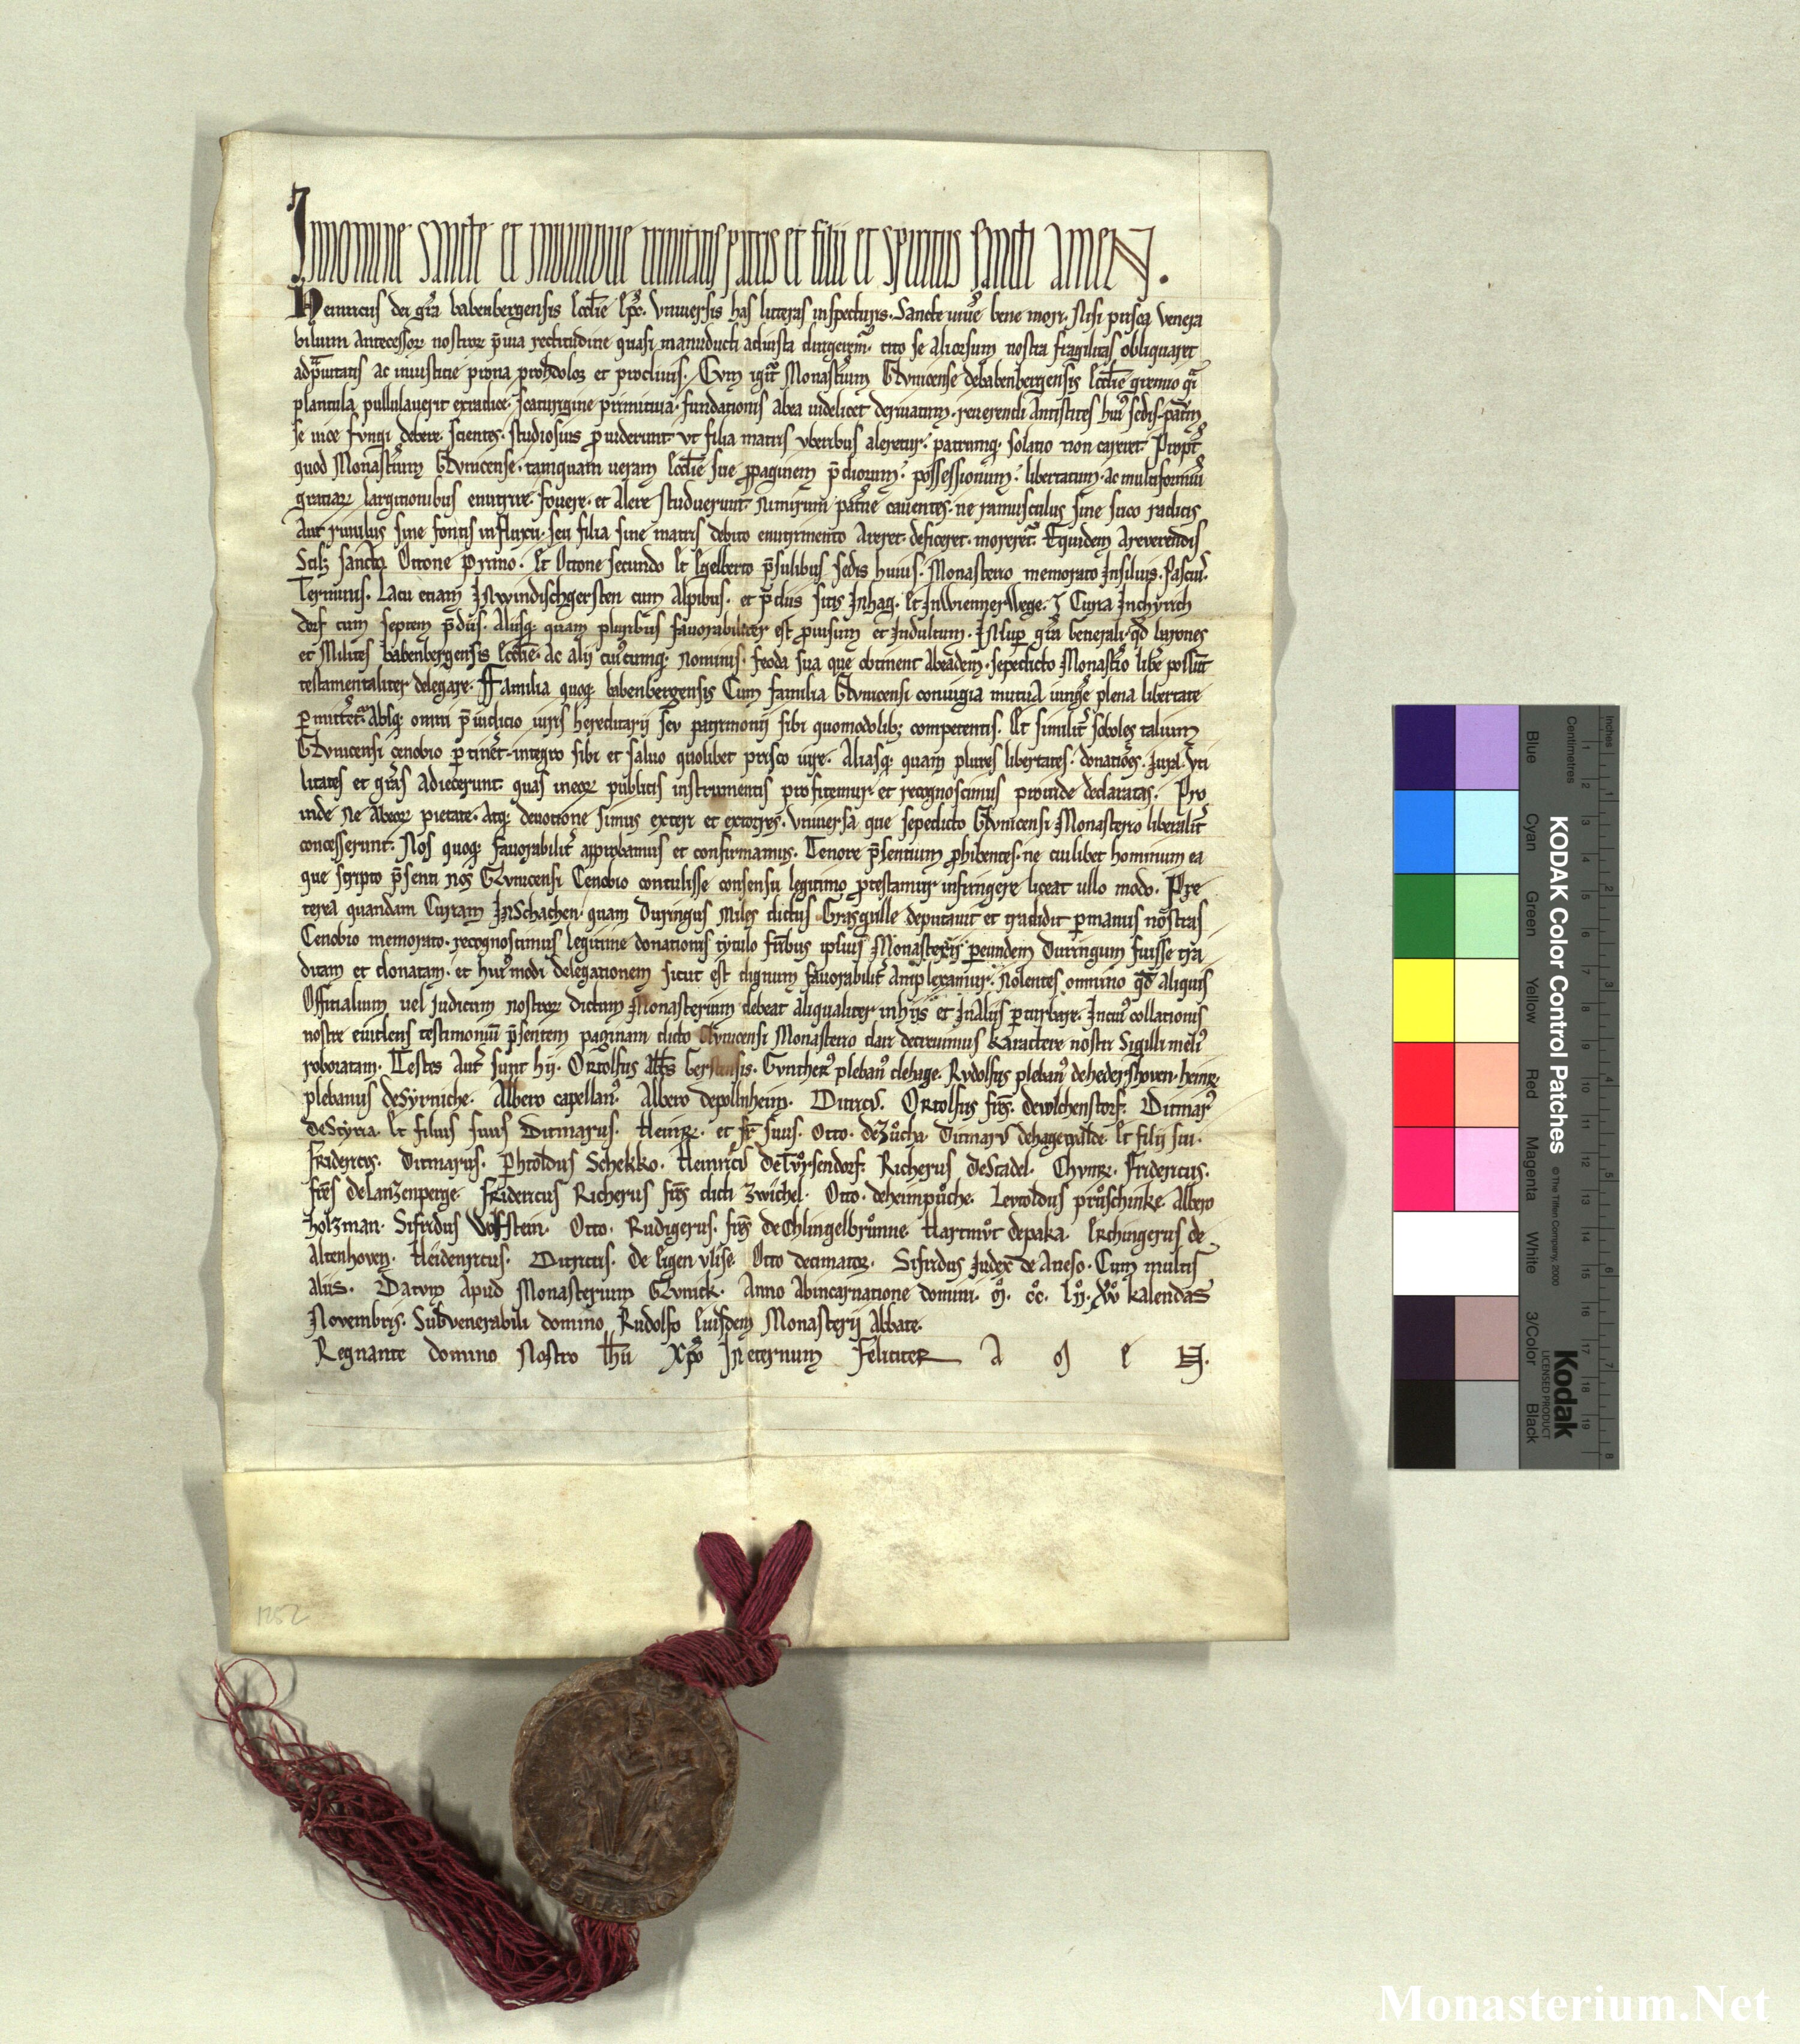 In nomine sancte et individue trinitatis patris et filii et spiritus sancti amen.
Heinricus dei gr̄a babenbergensis Eccl̄ie Ep̄c. Vniuersis has litteras inspecturis. Sancte uiue bene mori. Nisi prisca venera
bilium Antecessor nostror p̄uia rectitudine quasi manuducti adiusta dirigerem. cito se aliorsum nostra fragilitas obliquaret
et procliuis. Cvm igit Monast̄ium Glunicense debabenbergensis Eccl̄ie gremio
plantula pullulauerit exradice. scaturigine primitiua. fundationis abea uidelicet deriuatum. reuerendi Antistites hui sedis
se uice fungi debere. scientes. studiosius prouiderunt vt filia matris vberibus aleretur. patrumq solatio non careret. Propt
quod Monast̄ium Glunicense. tamquam ueram Eccl̄ie sue ppaginem p̄diorum. possessionum. libertatum. ac multiformiū
gratiar largitionibus enutrire. fouere. et alere studuerunt. nimirum cauentes. ne ramusculus sine suco radicis
Aut riuulus sine fontis influxu. seu filia sine matris debito enutrimento Areret. deficeret. moreret. Equidem Areuerendis
Scilz sancto Ottone Primo. Et Ottone secundo Et Egelberto p̄sulibus sedis huius. Monasterio memorato Insiluis. Pascuis.
Terminis. Lacu etiam INwindischgersten cum Alpibus. et p̄diis sitis Inhag. Et InWiennerWege. Curia Inchyrch
dorf cum septem p̄diis. Aliisq quam pluribus fauorabiliter est prouisum et Indultum. INsup gr̄a generali. qd barones
et Milites babenbergensis Eccl̄ie. Ac alij cuicumq nominis. feoda sua que obtinent Abeadem. sepedicto Monast̄io libe possūt
testamentaliter delegare. Familia quoq babenbergensis Cum familia Glunicensi conuigia mutua iunge plena libertate
p̄mittet. Absq omni p̄iudicio iuris hereditarij seu patrimonij sibi quomodolibz competentis. Et similit soboles talium
Glunicensi cenobio p̄tinet. integro sibi et saluo quolibet prisco iure. Aliasq quam plures libertates. donatiōes. vti
litates et gr̄as Adiecerunt. quas ineor publicis instrumentis profitemur et recognoscimus proinde declaratas. Pro
inde Ne Abeor pietate. Atq deuotione simus exteri et extorres. vniuersa que sepedicto Glunicensi Monasterio liberalit
concesserunt. Nos quoq fauorabilit approbamus et confirmamus. Tenore p̄sentium phibentes. ne cuilibet hominum ea
que scripto p̄senti nos Glunicensi Cenobio contulisse consensu legitimo ptestamur infringere liceat ullo modo. Pre
terea quandam Curiam INSchachen. quam Duringus miles dictus Grasgulle deputauit et tradidit p̄manus nostras
Cenobio memorato. recognoscimus legitime donationis tytulo fr̄ibus ipsius Monasterij p̄eundem Duringum fuisse tra
ditam et donatam. et hui modi delegationem sicut est dignum fauorabilit Amplexamur. Nolentes omnino qd aliquis
Officialium uel Iudicum nostror dictum Monasterium debeat aliqualiter inhijs et InAliis p̄turbare. Incui collationis
nostre euidens testimoniū p̄sentem paginam dicto Glunicensi Monasterio dari decreuimus karactere nostri Sigilli meli
roboratam. Testes Aut sunt hij. Ortolfus Abb̄s Gerstensis. Gunther pleban dehage. Rvdolfus pleban dehedershouen. heinr.
plebanus deSyrniche. Albero capellan. Albero depollnheim. Ortolfus fr̄es. dewlchenstorf. Ditmar
deStyria. Et filius suus Ditmarus. Heinr. et fr̄ suus. Otto. deZůcha Ditmar dehagewalde. Et filij sui.
Fridericus. Ditmarus. Phtoldus Schekko. Heinric Richerus deStadel. Chunr. Fridericus.
fr̄es deLanzenperge. Fridericus Richerus fr̄es dicti Zwichel. Otto. deheimpůche. Levtoldus průschinke. Albero
holzman. Sifridus Wlfstein. Otto. Rudigerus. fr̄es deChlingelbrunne. Hartmůt depaka. Erchingerus de
Altenhoven. Heidenricus. Diricus. de Eigen vlise. Otto decimator. Sifridus Iudex de Aneso. Cum multis
aliis. Datum Apud Monasterium Glunick. Anno Abincarnatione domini. M. CC. LII. XV kalendas
Novembris. Subvenerabili domino Rudolfo Eiusdem Monasterij Abbate.
Regnante domino Nostro Ih̄u Xp̄o INeternum Feliciter A M E N.
1252
KODAK Color Control Patches
© The Tiffen Company, 2000
Kodak
LICENSED PRODUCT
Inches
Centimetres
Blue
Cyan
Green
Yellow
Red
Magenta
White
3/Color
Black
Monasterium.Net